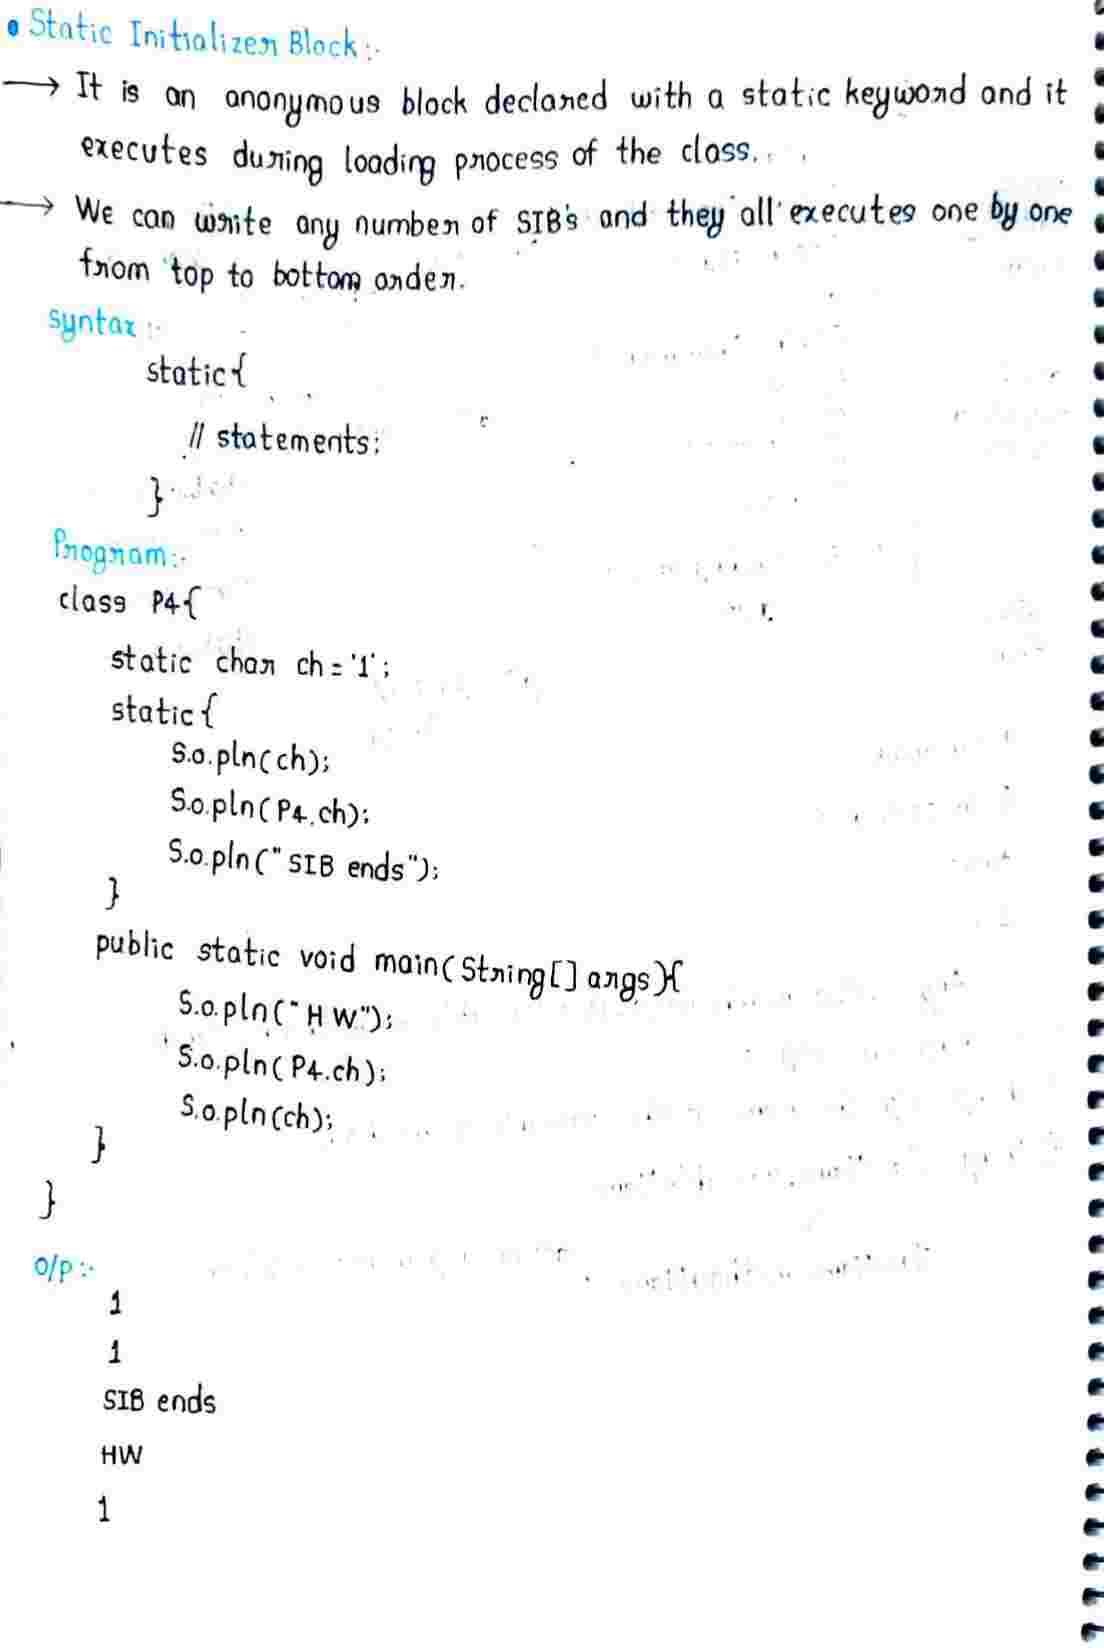 • Static Initializer Block:-
→ It is an anonymous block declared with a static keyword and it
executes during loading process of the class.
→ We can write any number of SIB's and they all executes one by one
from top to bottom order.
Syntax:-
static{
// statements;
}
Program:-
class P4{
static char ch = '1';
static{
S.o.pln(ch);
S.o.pln(P4.ch);
S.o.pln("SIB ends");
}
public static void main(String[] args){
S.o.pln("HW");
S.o.pln(P4.ch);
S.o.pln(ch);
}
}
O/P:-
1
1
SIB ends
HW
1